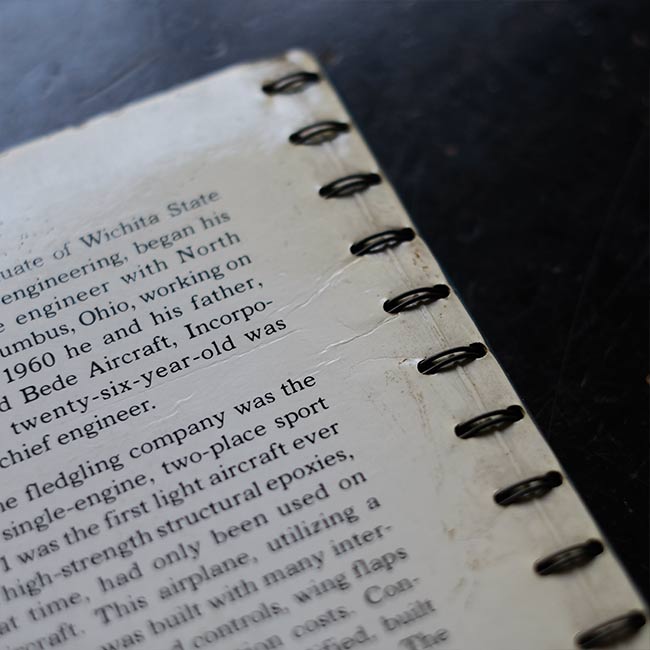 uate of Wichita State
engineering, began his
engineer with North
umbus, Ohio, working on
1960 he and his father,
d Bede Aircraft, Incorpo-
twenty-six-year-old was
chief engineer.
he fledgling company was the
single-engine, two-place sport
1 was the first light aircraft ever
high-strength structural epoxies,
at time, had only been used on
ircraft. This airplane, utilizing a
was built with many inter-
d controls, wing flaps
ion costs. Con-
built
The